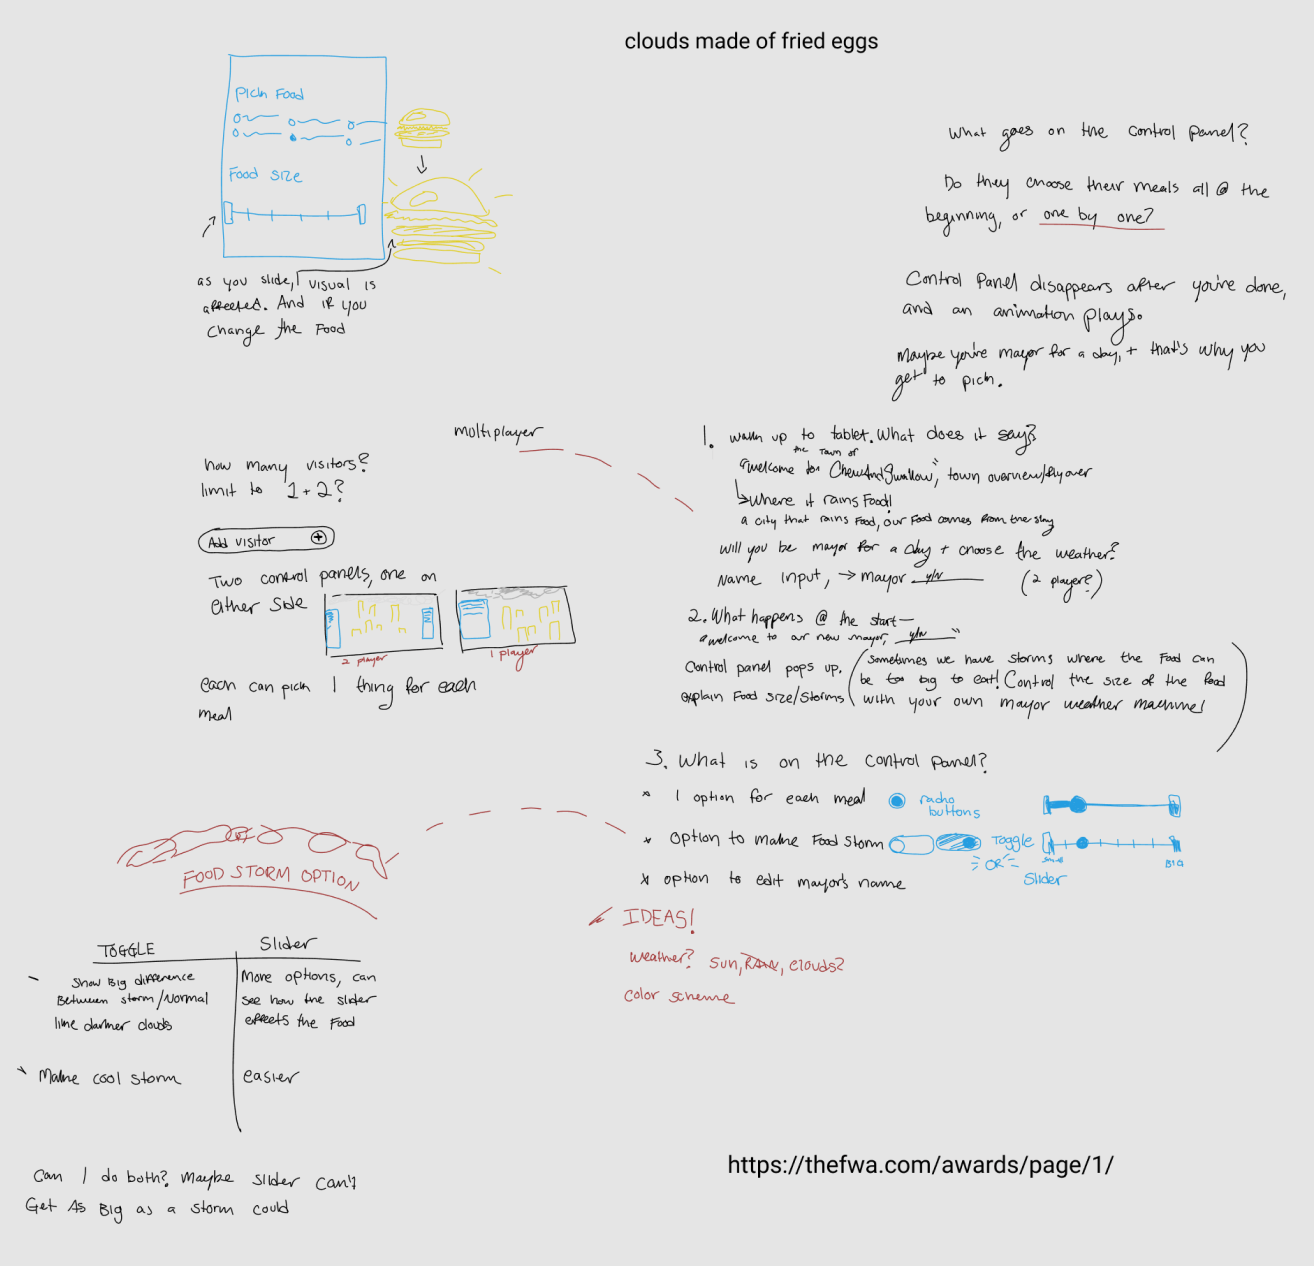 clouds made of fried eggs
Pick Food
Food size
as you slide, visual is
affected. And if you
change the food
What goes on the control panel?
Do they choose their meals all @ the
beginning, or one by one?
Control Panel disappears after you're done,
and an animation plays.
Maybe you're mayor for a day, + that's why you
get to pick.
multiplayer
how many visitors?
limit to 1 + 2?
Add visitor +
Two control panels, one on
either side
2 player
1 player
each can pick 1 thing for each
meal
1. walk up to tablet. What does it say?
the town of
"welcome to ChewAndSwallow", town overview/flyover
Where it rains Food!
a city that rains food, our food comes from the sky
Will you be mayor for a day + choose the weather?
Name input, → mayor y/n (2 player?)
2. What happens @ the start—
"welcome to our new mayor, y/n"
Control panel pops up.
explain Food size/storms
(Sometimes we have storms where the food can
be too big to eat! Control the size of the food
with your own mayor weather machine!)
3. What is on the control panel?
* 1 option for each meal
radio
buttons
* Option to make Food storm
Toggle
OR
Slider
small
BIG
* option to edit mayor's name
IDEAS!
Weather? Sun, Rain, clouds?
color scheme
FOOD STORM OPTION
TOGGLE
Slider
- Show Big difference
Between storm/Normal
like darker clouds
More options, can
see how the slider
effects the food
Make cool storm
easier
Can I do both? Maybe slider can't
Get As Big as a storm could
https://thefwa.com/awards/page/1/